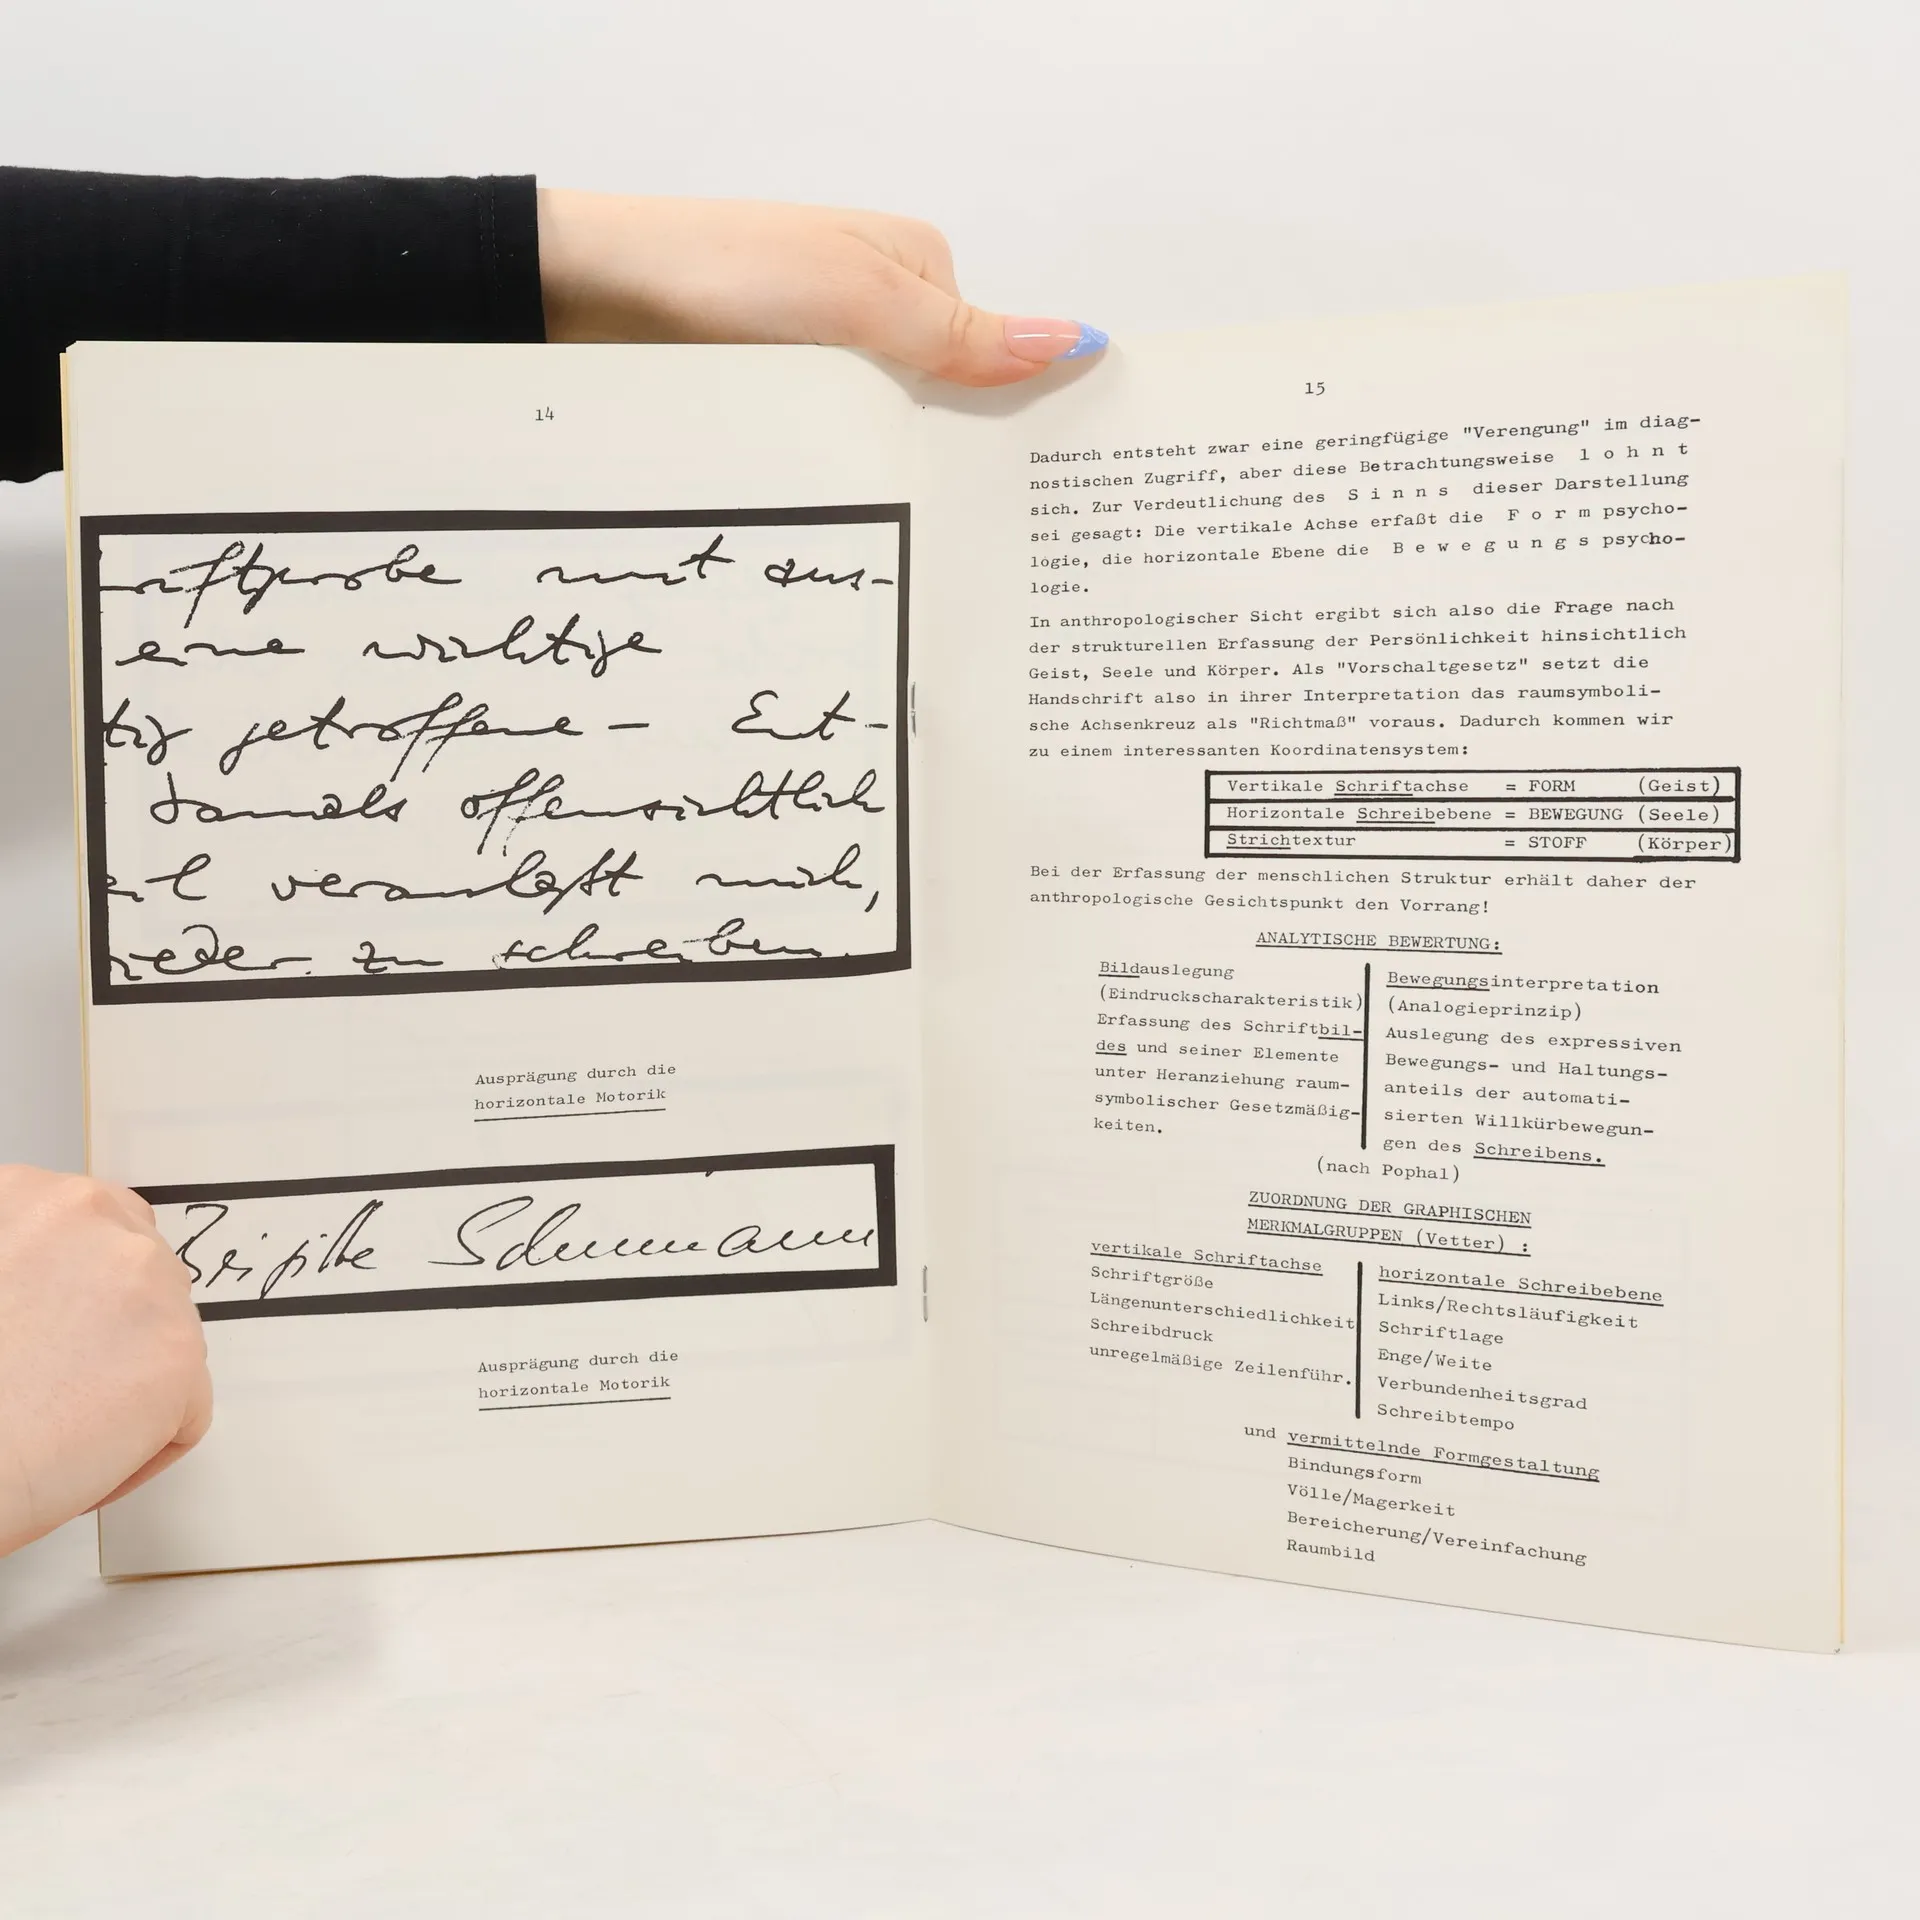 14
eine wichtige
tig getroffene - Ent-
damals offensichtlich
veranlaßt mich,
zu schreiben.
Ausprägung durch die
horizontale Motorik
Brigitte Schumann
Ausprägung durch die
horizontale Motorik
15
Dadurch entsteht zwar eine geringfügige "Verengung" im diag-
nostischen Zugriff, aber diese Betrachtungsweise l o h n t
sich. Zur Verdeutlichung des S i n n s dieser Darstellung
sei gesagt: Die vertikale Achse erfaßt die F o r m psycho-
logie, die horizontale Ebene die B e w e g u n g s psycho-
logie.
In anthropologischer Sicht ergibt sich also die Frage nach
der strukturellen Erfassung der Persönlichkeit hinsichtlich
Geist, Seele und Körper. Als "Vorschaltgesetz" setzt die
Handschrift also in ihrer Interpretation das raumsymboli-
sche Achsenkreuz als "Richtmaß" voraus. Dadurch kommen wir
zu einem interessanten Koordinatensystem:
Vertikale Schriftachse = FORM (Geist)
Horizontale Schreibebene = BEWEGUNG (Seele)
Strichtextur = STOFF (Körper)
Bei der Erfassung der menschlichen Struktur erhält daher der
anthropologische Gesichtspunkt den Vorrang!
ANALYTISCHE BEWERTUNG:
Bildauslegung
(Eindruckscharakteristik)
Erfassung des Schriftbil-
des und seiner Elemente
unter Heranziehung raum-
symbolischer Gesetzmäßig-
keiten.
Bewegungsinterpretation
(Analogieprinzip)
Auslegung des expressiven
Bewegungs- und Haltungs-
anteils der automati-
sierten Willkürbewegun-
gen des Schreibens.
(nach Pophal)
ZUORDNUNG DER GRAPHISCHEN
MERKMALGRUPPEN (Vetter) :
vertikale Schriftachse
Schriftgröße
Längenunterschiedlichkeit
Schreibdruck
unregelmäßige Zeilenführ.
horizontale Schreibebene
Links/Rechtsläufigkeit
Schriftlage
Enge/Weite
Verbundenheitsgrad
Schreibtempo
und vermittelnde Formgestaltung
Bindungsform
Völle/Magerkeit
Bereicherung/Vereinfachung
Raumbild